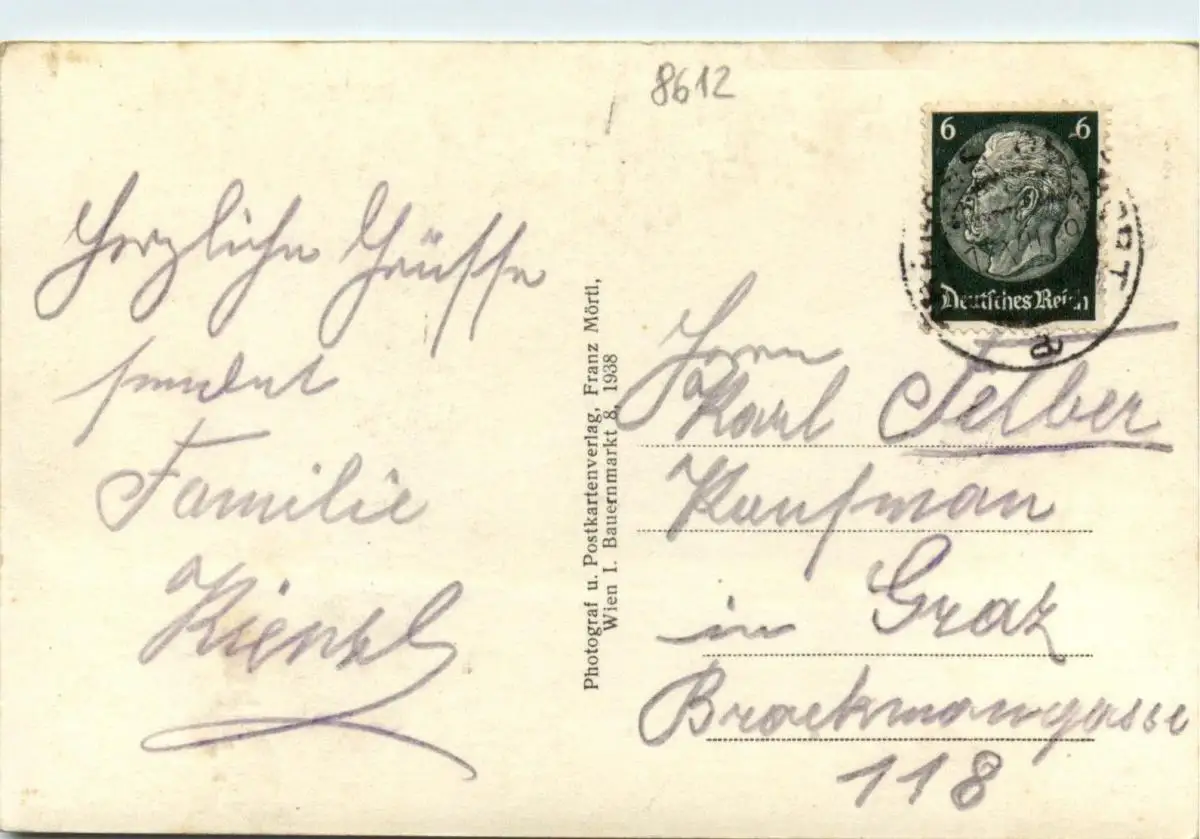 8612
6 6
Deutsches Reich
Herzliche Grüsse
sendet
Familie
Kienzl
Photograf u. Postkartenverlag, Franz Mörtl,
Wien I. Bauernmarkt 8, 1938
Herrn
Karl Felber
Kaufman
in Graz
Brockmangasse
118